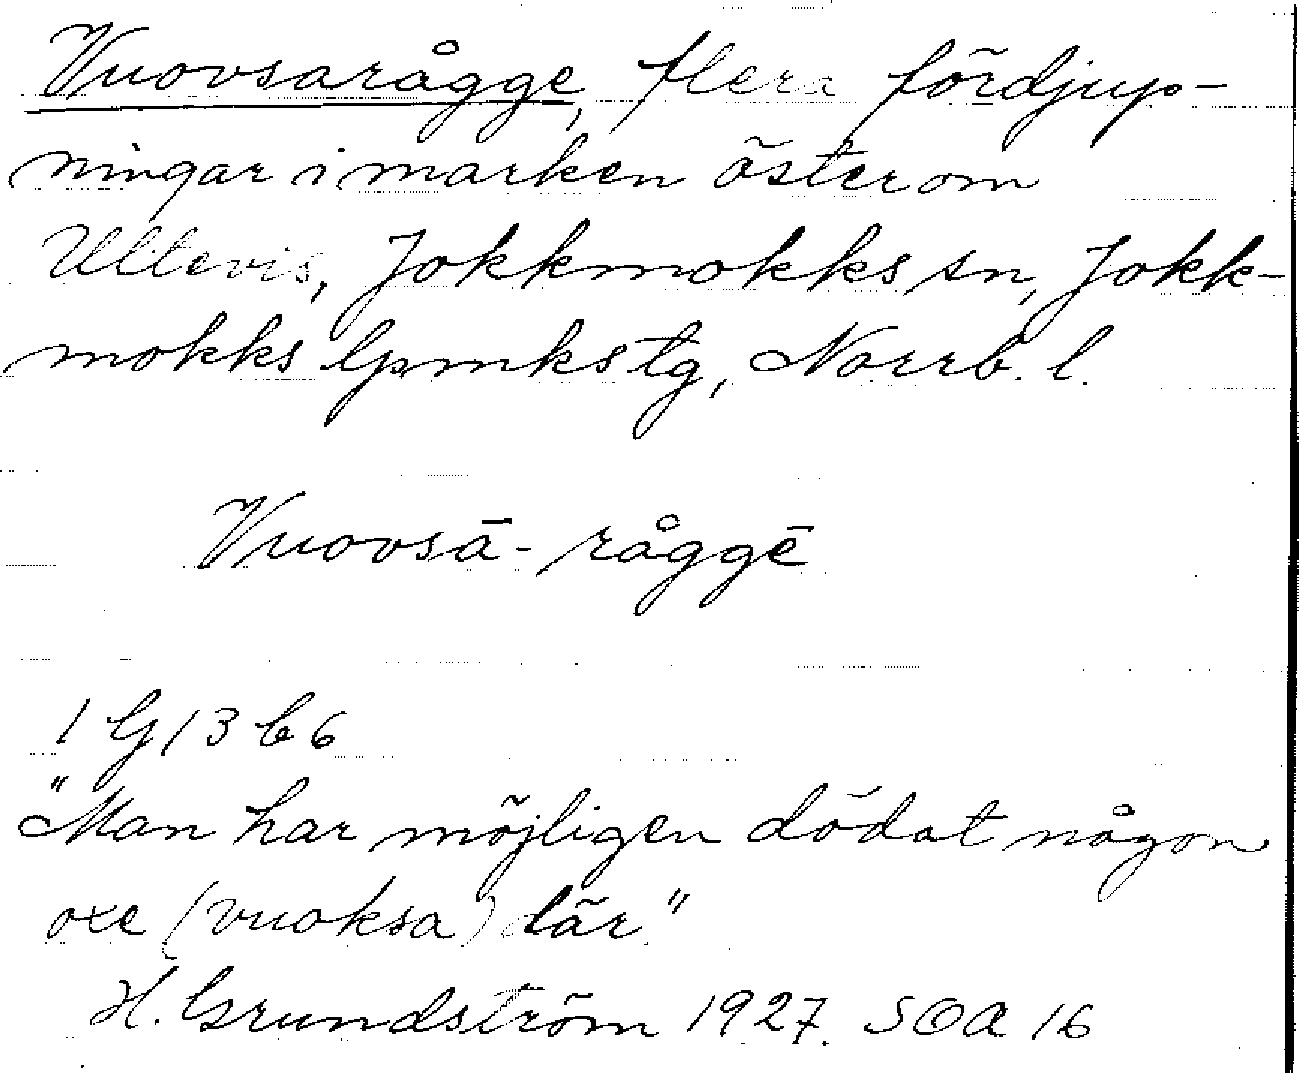 Vuovsarågge, flera fördjup-
ningar i marken österom
Ultevis, Jokkmokks sn, Jokk-
mokks lpmkstg, Norrb. l.
Vuovsā-råggē
1 G 13 b 6
"Man har möjligen dödat någon
oxe (vuoksa) där."
H. Grundström 1927. SOA 16